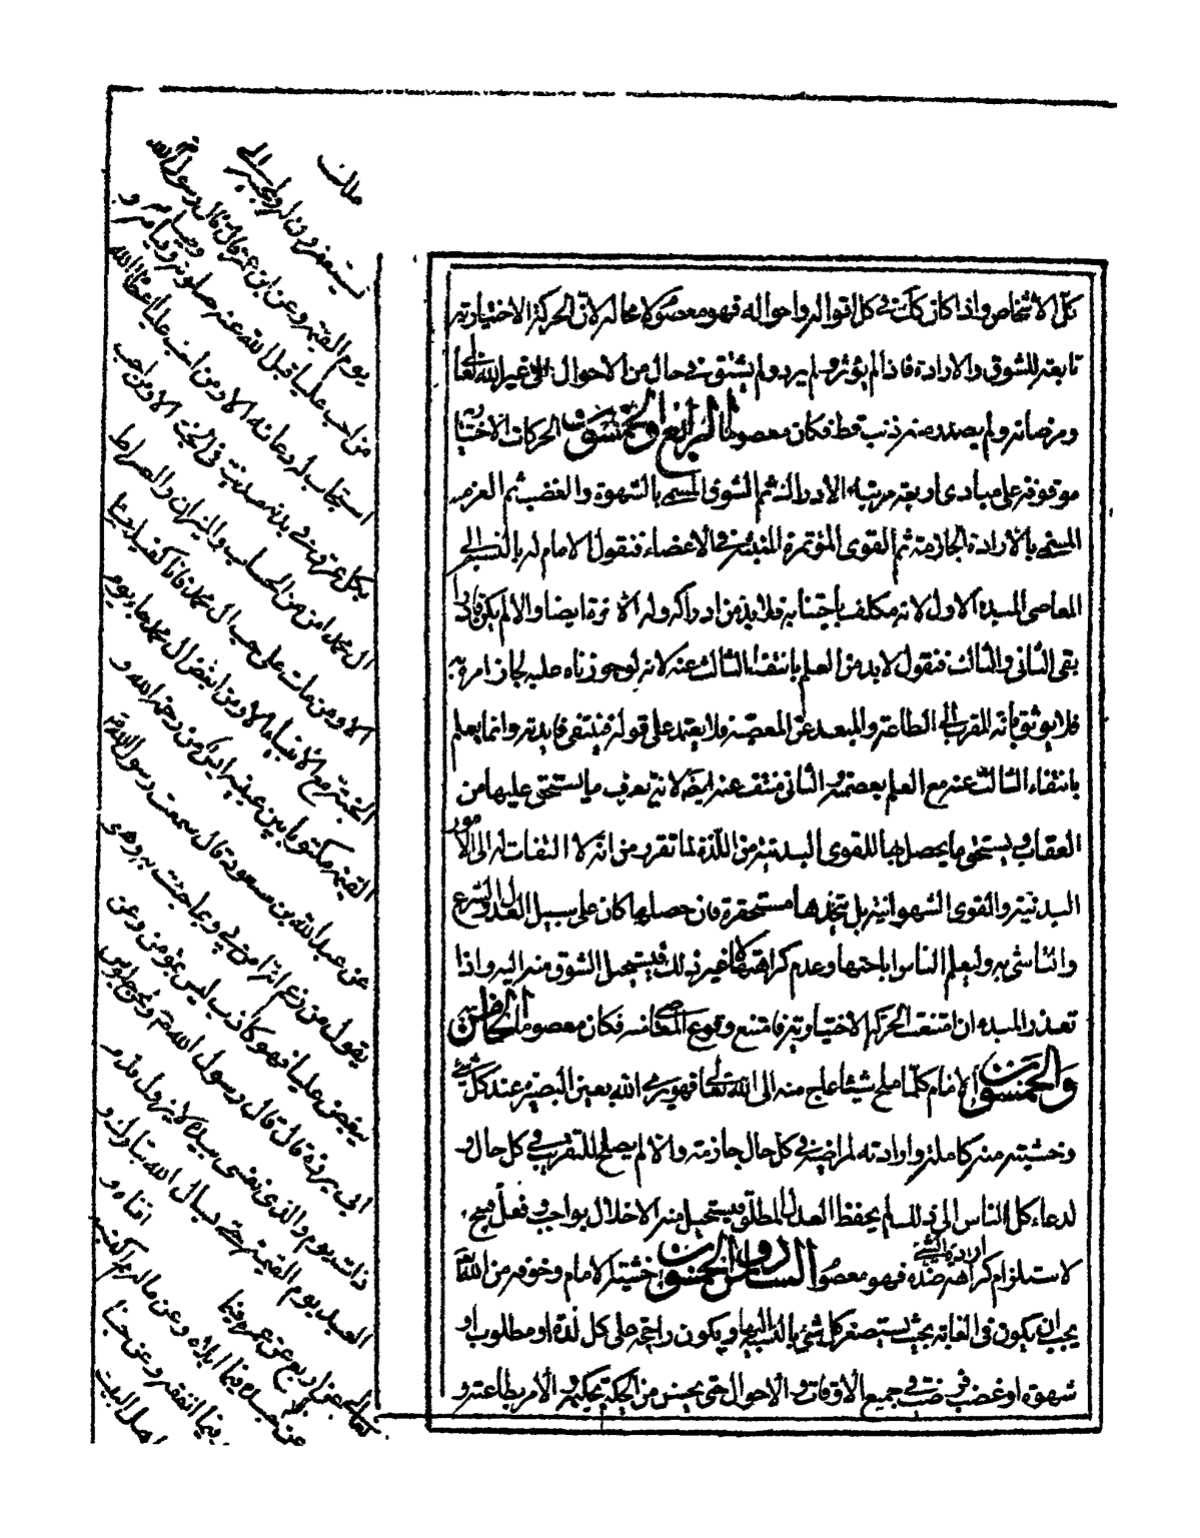 كل الاشخاص واذا كان كك فى كل اقواله واحواله فهو معصوم لا محاله لان الحركة الاختيارية
تابعة للشوق والارادة فاذا لم يؤثر ولم يرد ولم يشتق فى حال من الاحوال الى غير الله تعالى
ومرضاته ولم يصدر منه ذنب قط فكان معصوما الرابع والخمسون الحركات الاختيارية
موقوفة على مبادى اربعة مرتبة الادراك ثم الشوق المسمى بالشهوة والغضب ثم العزم
المسمى بالارادة الجازمة ثم القوى المؤتمرة المنبثة فى الاعضاء فنقول الامام له بالنسبة الى
المعاصى المبدء الاول لانه مكلف باجتنابه فلا بد من ادراكه وله الاخرة ايضا والا لم يكن
بقى الثانى والثالث فنقول لا بد من العلم بانتفاء الثالث عنه لانه لو جوزناه عليه لجاز امره به
فلا يوثق بانه المقرب الى الطاعة والمبعد عن المعصية فلا يعتمد على قوله فينتفى فايدته وانما يعلم
بانتفاء الثالث عنه مع العلم بعصمته والثانى منتف عنه ايضا لانه يعرف ما يستحق عليها من
العقاب ويستحقر ما يحصل بها للقوى البدنية من اللذة لما تقرر من انه لا التفات له الى الامور
البدنية والقوى الشهوانية بل يتخذها مستحقرة فان حصلها كان على سبيل العدل والشرع
والتأسى به وليعلم الناس اباحتها وعدم كراهتها الى غير ذلك فيستحيل الشوق منه اليه واذا
تعذر المبدء ان امتنعت الحركة الاختيارية فامتنع وقوع المعاصى منه فكان معصوما الخامس
والخمسون الامام كلما ملح شيئا علج منه الى الله تعالى فهو يرى الله بعين البصيرة عند كل شئ
وخشيته منه كاملة وارادته لمراضيه فى كل حال جازمة والا لم يصلح للتقريب فى كل حال و
لدعاء كل الناس الى ذلك لم يحفظ العدل المطلق فيستحيل منه الاخلال بواجب وفعل قبيح
لاستلزام ارادة الشئ كراهة ضده فهو معصوم السادس والخمسون خشية الامام وخوفه من الله تعالى
يجب ان يكون فى الغاية بحيث يستصغر كل شئ بالنسبة اليها ويكون راجحة على كل لذة او مطلوب او
شهوة او غضب فى جميع الاوقات والاحوال حتى يحسن من الحكيم تحكيمه والامر بطاعته و
ملك
يستغفرون له
يوم القيمة وعن ابن عمر قال قال رسول الله
من احب عليا قبل الله عنه صلوته وصيامه وقيامه و
استجاب له دعائه الا ومن احب عليا اعطاه الله
بكل عرق فى بدنه مدينة فى الجنة الا ومن احب
ال محمد امن من الحساب والميزان والصراط
الا ومن مات على حب ال محمد فانا كفيله
الجنة مع الانبياء الا ومن ابغض ال محمد جاء يوم
القيمة مكتوبا بين عينيه ايس من رحمة الله و
عن عبدالله بن مسعود قال سمعت رسول الله
يقول من زعم انه امن بى وبما جئت به وهو
يبغض عليا فهو كاذب ليس بمؤمن وعن
ابى برزة قال قال رسول الله ونحن جلوس
ذات يوم والذى نفسى بيده لا يزول قدم
العبد يوم القيمة حتى يسال الله تبارك و
تعالى عن اربع عن عمره فيما افناه و
عن جسده فيما ابلاه وعن ماله مم اكتسبه
وفيما انفقه وعن حبنا
اهل البيت